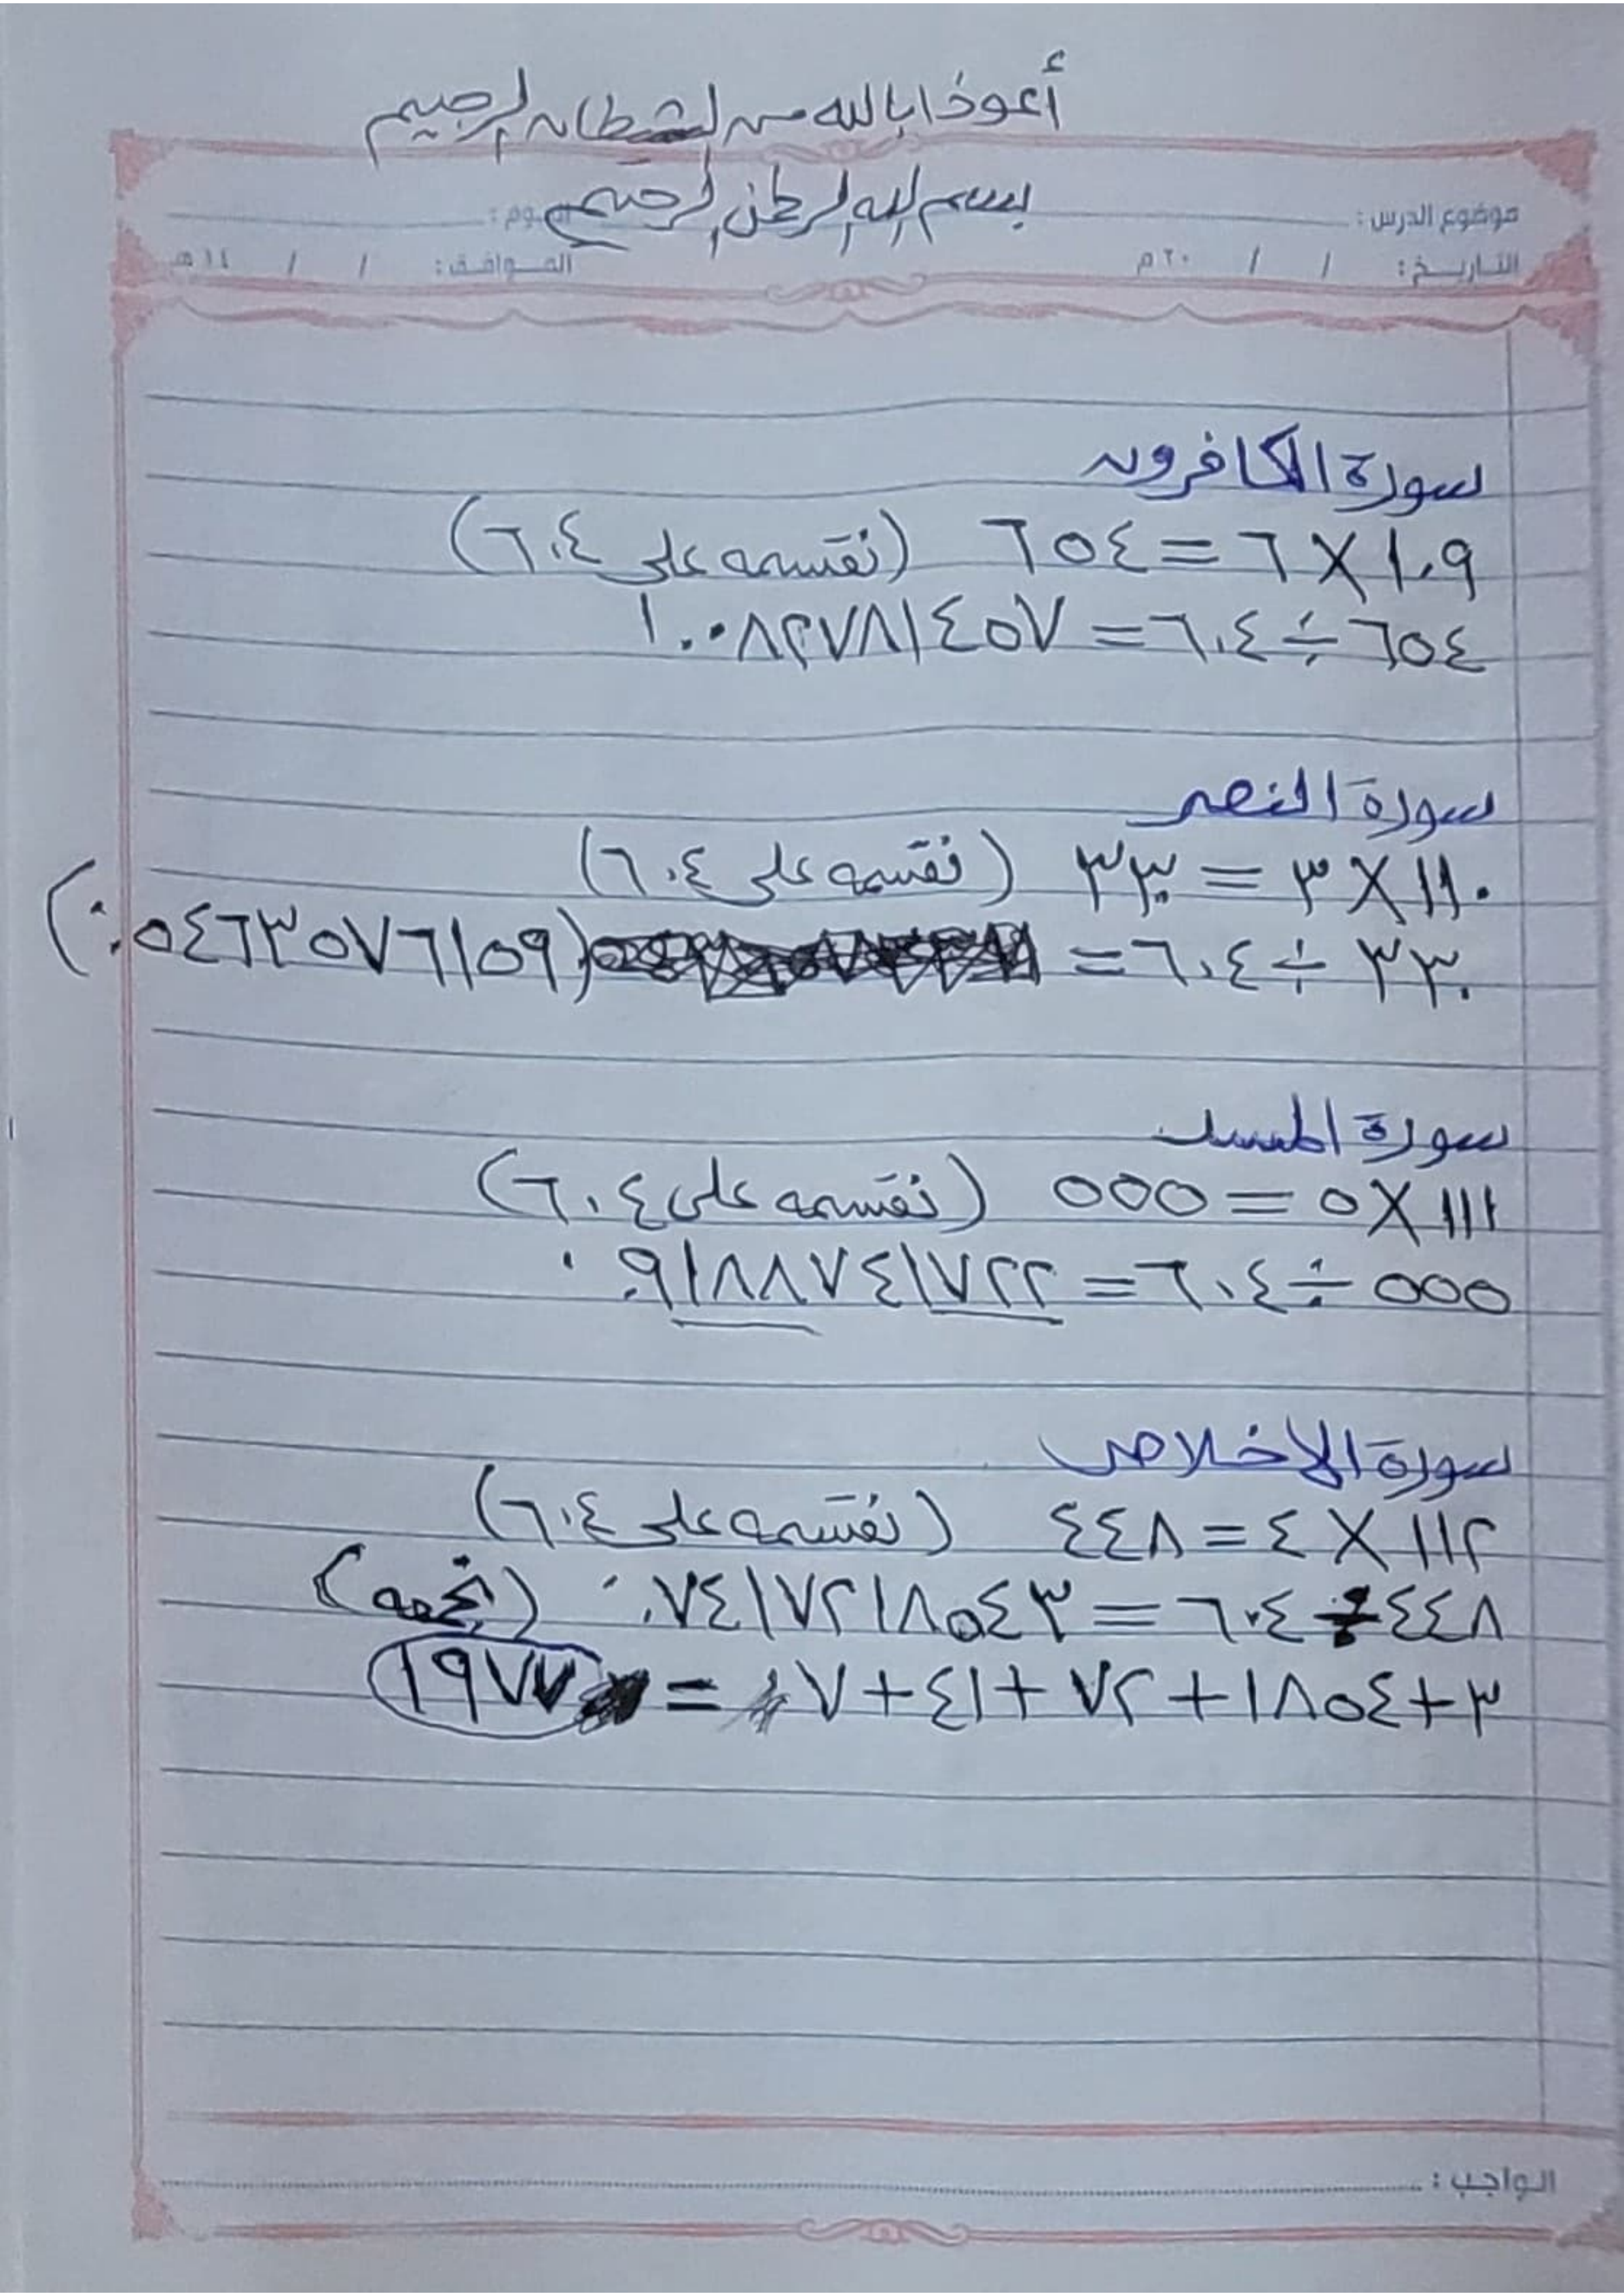 أعوذ بالله من الشيطان الرجيم
بسم الله الرحمن الرحيم
موضوع الدرس : اليوم :
التاريخ : / / ٢٠م الموافق : / / ١٤هـ
سورة الكافرون
١٠٩ × ٦ = ٦٥٤ (نقسمه على ٦٠٤)
٦٥٤ ÷ ٦٠٤ = ١.٠٨٢٧٨١٤٥٧
سورة النصر
١١٠ × ٣ = ٣٣٠ (نقسمه على ٦٠٤)
٣٣٠ ÷ ٦٠٤ = (٠.٥٤٦٣٥٧٦١٥٩)
سورة المسد
١١١ × ٥ = ٥٥٥ (نقسمه على ٦٠٤)
٥٥٥ ÷ ٦٠٤ = ٠.٩١٨٨٧٤١٧٢٢
سورة الإخلاص
١١٢ × ٤ = ٤٤٨ (نقسمه على ٦٠٤)
٤٤٨ ÷ ٦٠٤ = ٠.٧٤١٧٢١٨٥٤٣ (نجمعه)
٣ + ١٨٥٤ + ٧٢ + ٤١ + ٧ = ١٩٧٧
الواجب :